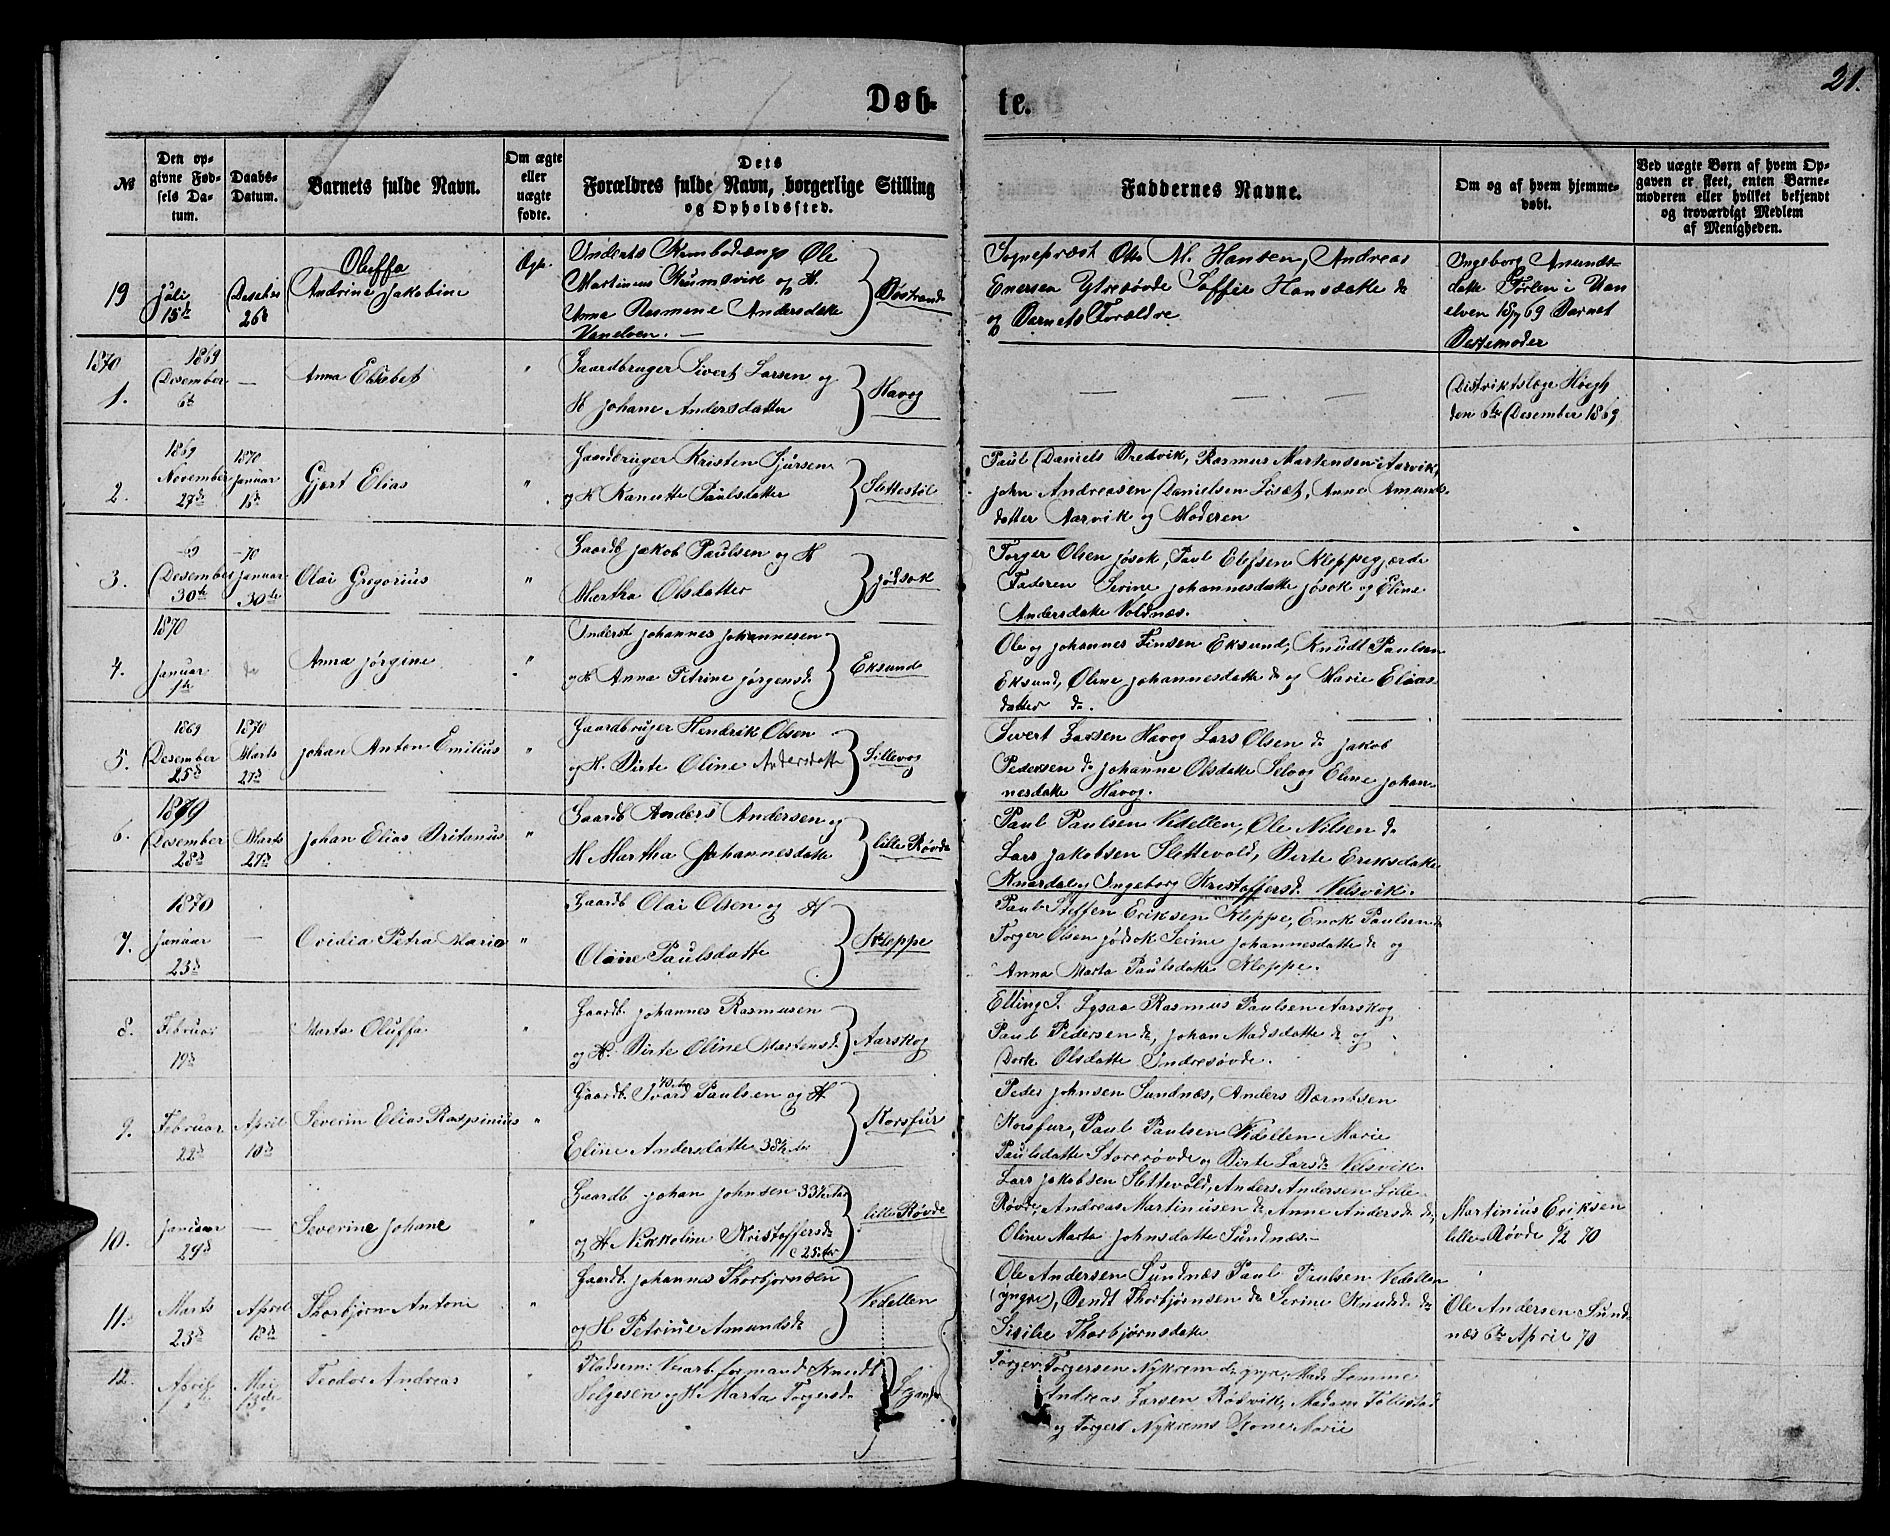 21.
Døb-
te.
№
Den op-
givne Fød-
sels Da-
tum.
Daabs-
Datum.
Barnets fulde Navn.
Om ægte
eller
uægte
fødte.
Dets
Forældres fulde Navn, borgerlige Stilling
og Opholdssted.
Faddernes Navne.
Om og af hvem hjemme-
døbt.
Ved uægte Børn af hvem Op-
gaven er skeet, enten Barne-
moderen eller hvilket bekjendt
og troværdigt Medlem
af Menigheden.
19
Juli
15de
Desebr
26de
Oluffa
Andrine Jakobine
Ægte
Ole
Martinius Krumsvik og H.
Anna Rasmine Andersdatte
Vanelven. —
Sogneprest Otto M. Hansen, Andreas
Enersen Ytrerøvde Saffie Hansdatte do
og Barnets Forældre
Ingeborg Amunds-
datte i Van
elven 15/7 69 Barnet
Bestemoder
1870
1.
1869
Desember
6te
—
Anna Elisabet
"
Gaardbruger Sivert Larsen og
H Johane Andersdatter
Havog
— — —
Distriktslæge Høegh
den 6te Desember 1869
2.
1869
November
27de
1870
Januar
16de
Gjert Elias
"
Gaardbruger Kristen Sjursen
og H Kanutte Paulsdatter
Slettestøl
Paul Daniels Bredvik, Rasmus Martensen Aarvik,
John Andreasen Danielsen, Anne Amunds-
datter Aarvik og Moderen
3.
-69
Desember
30te
-70
Januar
30te
Olai Gregorius
"
Gaardb Jakob Paulsen og H
Martha Olsdatter
Jødsok
Torger Olsen Jøsok, Paul Elefsen Kleppegjærde
Faderen Serine Johannesdatte Jøsok og Eline
Andersdatte Voldnæs.
4.
1870
Januar
1te
do
Anna Jørgine
"
Inderst Johannes Johannesen
og H Anna Petrine Jørgensd.
Eksund
Ole og Johannes Finsen Eksund, Knudt Paulsen
Eksund, Oline Johannesdatte do og Marie Elias-
datter do.
5.
1869
Desember
25de
1870
Marts
27de
Johan Anton Emilius
"
Gaardbruger Hendrik Olsen
og H. Birte Oline Andersdatte
Sillevog
Sivert Larsen Havog Lars Olsen do Jakob
Pedersen do Johanna Olsdatte Selvog Eline Johan-
nesdatte Havog.
6.
1869
Desember
28de
Marts
27de
Johan Elias Britanus
"
Gaardb Anders Andersen og
H Martha Johannesdatte
lille Røvde
Paul Paulsen Vedellen, Ole Nilsen do
Lars Jakobsen Slettevold, Birte Eriksdatte
Knardal og Ingeborg Kristoffersd. Velsvik.
7.
1870
Januar
23de
—
Ovidia Petra Maria
"
Gaardb Olai Olsen og H
Olaine Paulsdatte
Kleppe
Paul Steffen Eriksen Kleppe, Enok Paulsen do
Torger Olsen Jødsok Serine Johannesdatte do og
Anna Marta Paulsdatte Kleppe.
8.
Februar
19de
—
Marta Oluffa
"
Gaardb. Johannes Rasmusen
og H. Birte Oline Martensd.
Aarskog
Elling S. Lysaa Rasmus Paulsen Aarskog
Paul Pedersen do, Johan Madsdatte do og
Dorte Olsdatte Indrerøvde.
9.
Februar
22de
April
10de
Severin Elias Raspinius
"
Gaardb. Paulsen og H
Eline Andersdatte 38½ Aar
Korsfur
Peder Johnsen Sundnæs, Anders Berntsen
Korsfur, Paul Paulsen Vedellen Marie
Paulsdatte Storerøvde og Birte Larsd. Velsvik.
10.
Januar
29de
—
Severine Johane
"
Gaardb Johan Johnsen 33½ Aar
og H Nikkoline Kristoffersd.
25 Aar
lille Røvde
Lars Jakobsen Slettevold, Anders Andersen Lille
Røvde, Andreas Martinusen do Anne Andersd. do,
Oline Marta Johnsdatte Sundnæs.
Martinius Eriksen
lille Røvde 9/2 70
11.
Marts
23de
April
18de
Thorbjørn Antoni
"
Gaardb. Johannes Thorbjørnsen
og H Petrine Amundsd.
Vedellen
Ole Andersen Sundnæs Paul Paulsen Vedellen
(yngre), Bendt Thorbjørnsen do Serine Knudsd. do
Sisilie Thorbjørnsdatte
Ole Andersen Sund-
næs 6te April 70
12.
April
Mai
Teodor Andreas
"
formand Knudt
Helgesen og H Marta Torgersd.
Torger Torgersen Nykrem do yngre, Mad. Lomme
Andreas Larsen Rødvik, Madam Follestad
og Torgert Nykrems Kone Marie